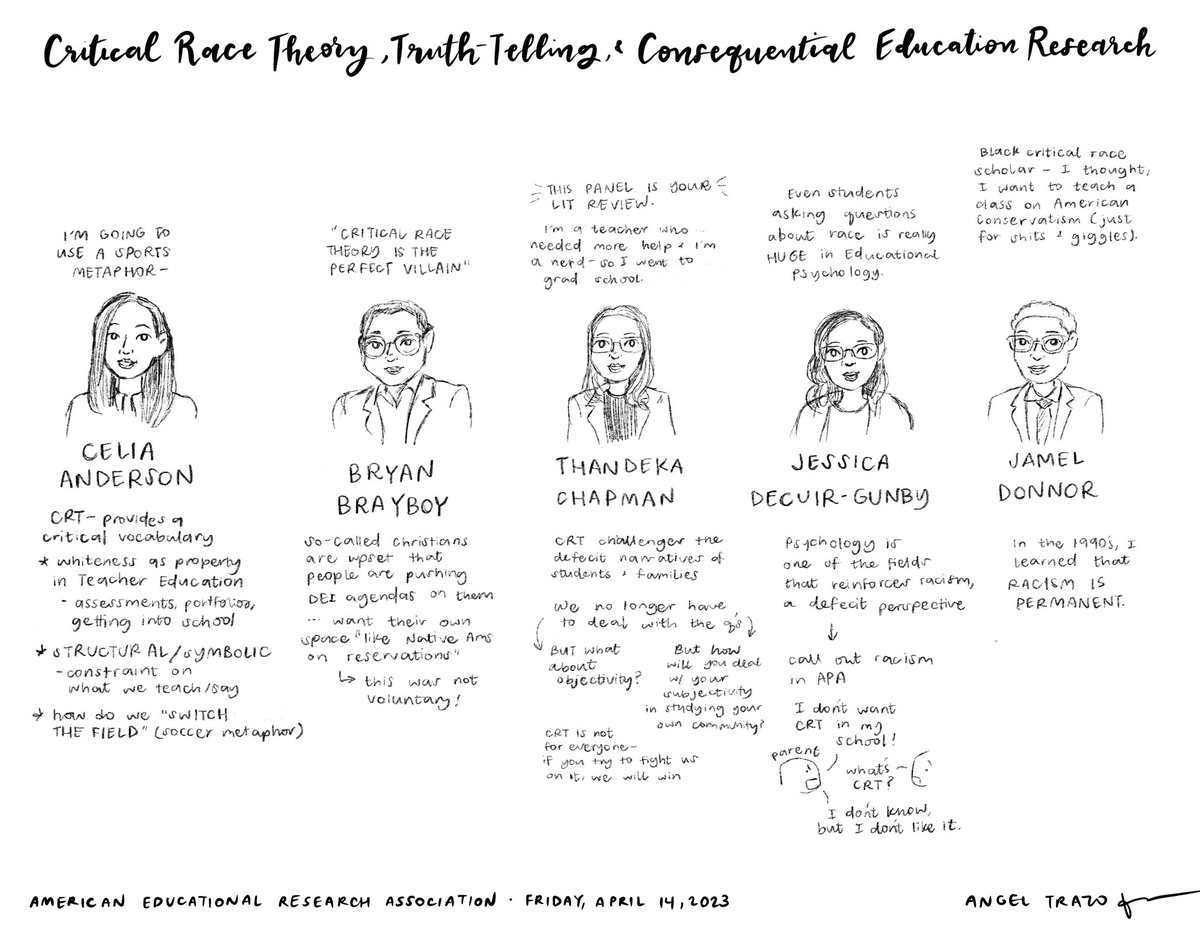 Critical Race Theory, Truth-Telling, & Consequential Education Research
I'M GOING TO
USE A SPORTS
METAPHOR—
CELIA
ANDERSON
CRT— provides a
critical vocabulary
* whiteness as property
in Teacher Education
- assessments, portfolios,
getting into school
* STRUCTURAL/SYMBOLIC
- constraint on
what we teach/say
→ how do we "SWITCH
THE FIELD" (soccer metaphor)
"CRITICAL RACE
THEORY IS THE
PERFECT VILLAIN"
BRYAN
BRAYBOY
so-called christians
are upset that
people are pushing
DEI agendas on them
... want their own
space "like Native Ams
on reservations"
↳ this was not
voluntary!
THIS PANEL IS YOUR
LIT REVIEW.
I'm a teacher who
needed more help & I'm
a nerd – so I went to
grad school.
THANDEKA
CHAPMAN
CRT challenger the
deficit narratives of
students & families
We no longer have
to deal with the q's
BUT what
about
objectivity?
But how
will you deal
w/ your
subjectivity
in studying your
own community?
CRT is not
for everyone—
if you try to fight us
on it, we will win
Even students
asking questions
about race is really
HUGE in Educational
Psychology.
JESSICA
DECUIR-GUNBY
Psychology is
one of the fields
that reinforces racism,
a deficit perspective
↓
call out racism
in APA
I don't want
CRT in my
school!
parent
what's
CRT?
I don't know,
but I don't like it.
Black critical race
scholar – I thought,
I want to teach a
class on American
Conservatism (just
for shits & giggles).
JAMEL
DONNOR
In the 1990's, I
learned that
RACISM IS
PERMANENT.
AMERICAN EDUCATIONAL RESEARCH ASSOCIATION · FRIDAY, APRIL 14, 2023
ANGEL TRAZO